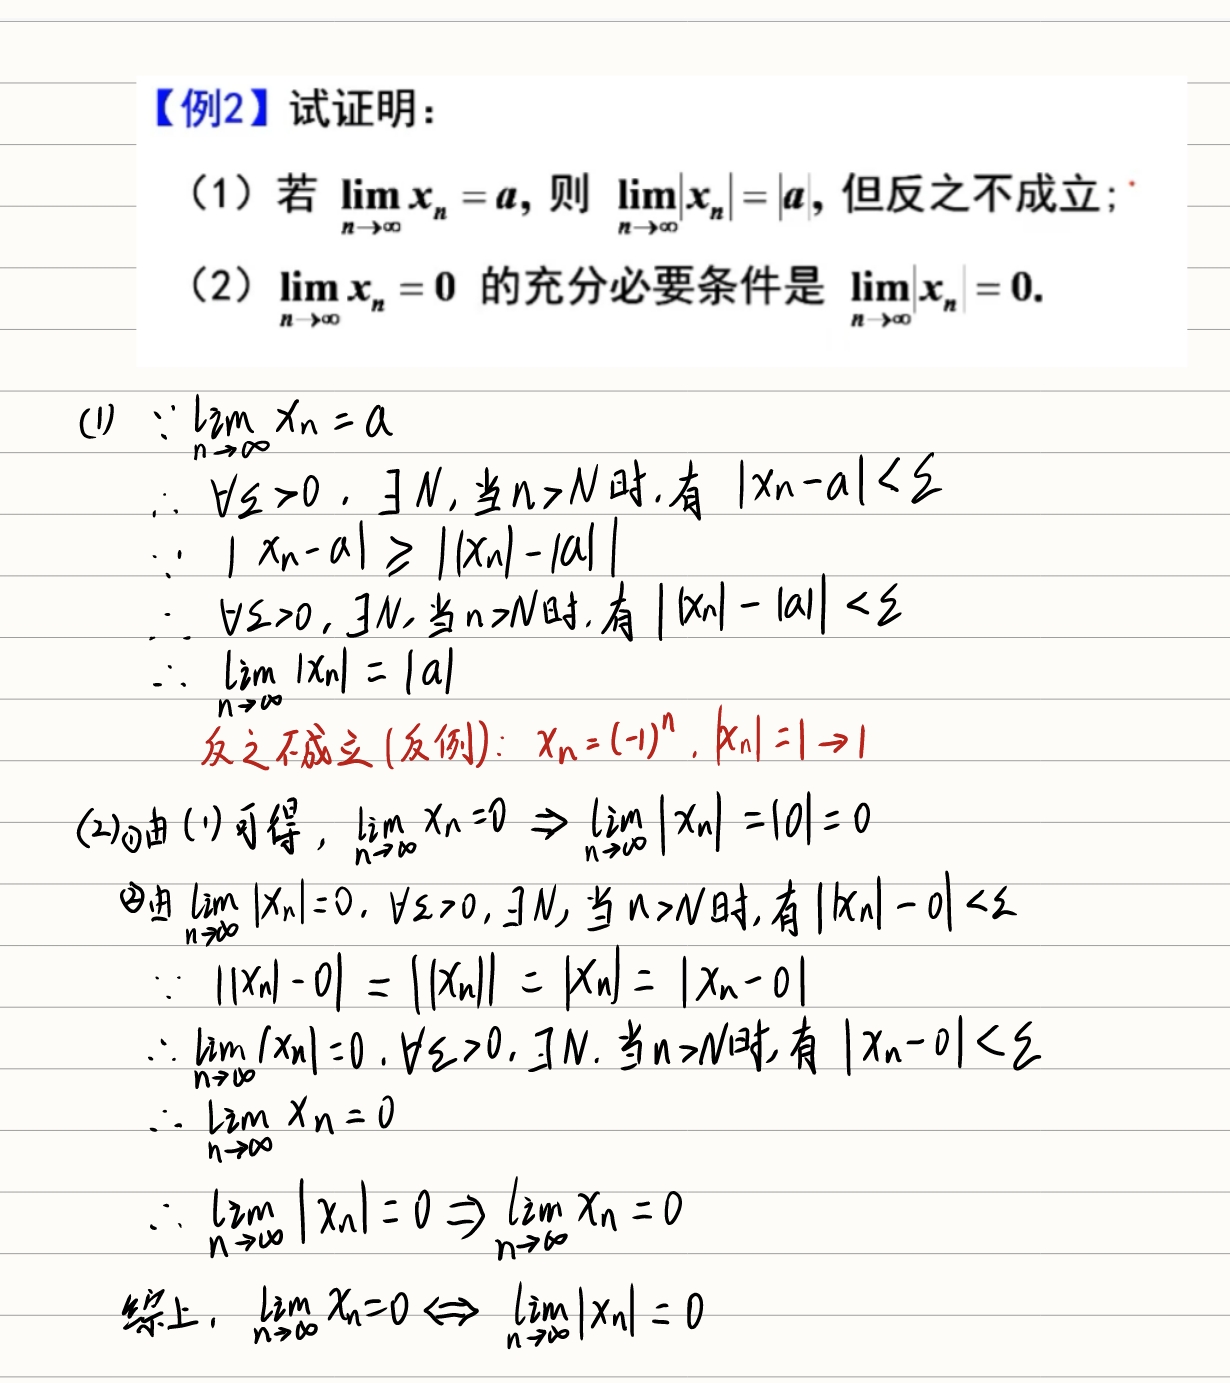 【例2】试证明：
（1）若 lim_{n→∞} xₙ = a, 则 lim_{n→∞} |xₙ| = |a|, 但反之不成立；
（2）lim_{n→∞} xₙ = 0 的充分必要条件是 lim_{n→∞} |xₙ| = 0.
(1) ∵ lim_{n→∞} xₙ = a
∴ ∀ε>0, ∃N, 当n>N时, 有 |xₙ-a|<ε
∵ |xₙ-a| ≥ ||xₙ|-|a||
∴ ∀ε>0, ∃N, 当n>N时, 有 ||xₙ|-|a||<ε
∴ lim_{n→∞} |xₙ| = |a|
反之不成立(反例): xₙ=(-1)ⁿ, |xₙ|=1→1
(2)①由(1)可得, lim_{n→∞} xₙ=0 ⇒ lim_{n→∞} |xₙ| =|0|=0
②由 lim_{n→∞} |xₙ|=0, ∀ε>0, ∃N, 当n>N时, 有||xₙ|-0|<ε
∵ ||xₙ|-0| = ||xₙ|| = |xₙ| = |xₙ-0|
∴ lim_{n→∞} |xₙ|=0, ∀ε>0, ∃N, 当n>N时, 有 |xₙ-0|<ε
∴ lim_{n→∞} xₙ = 0
∴ lim_{n→∞} |xₙ|=0 ⇒ lim_{n→∞} xₙ=0
综上, lim_{n→∞} xₙ=0 ⇔ lim_{n→∞} |xₙ| = 0